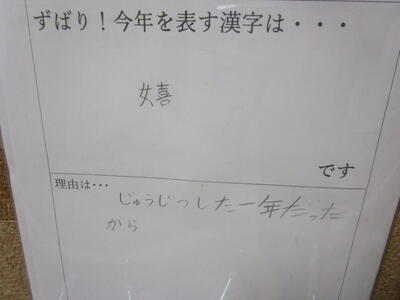 ずばり！今年を表す漢字は・・・
嬉
です
理由は・・・
じゅうじつした一年だった
から